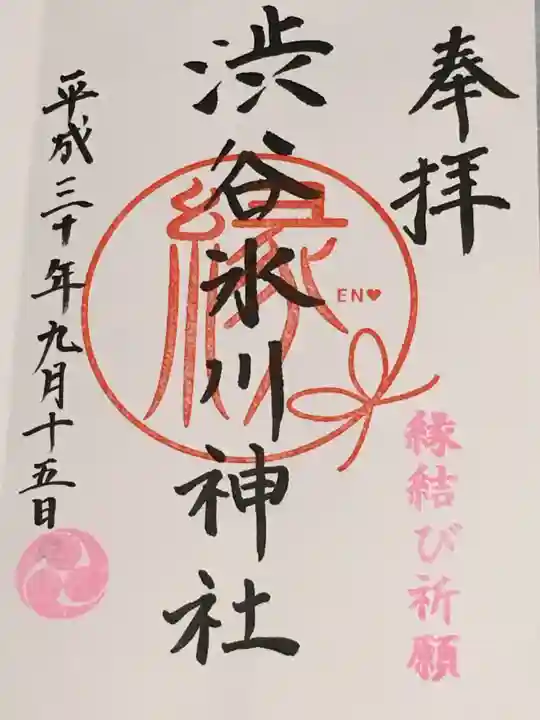 奉拝
縁結び祈願
渋谷氷川神社
縁
EN♥
平成三十年九月十五日